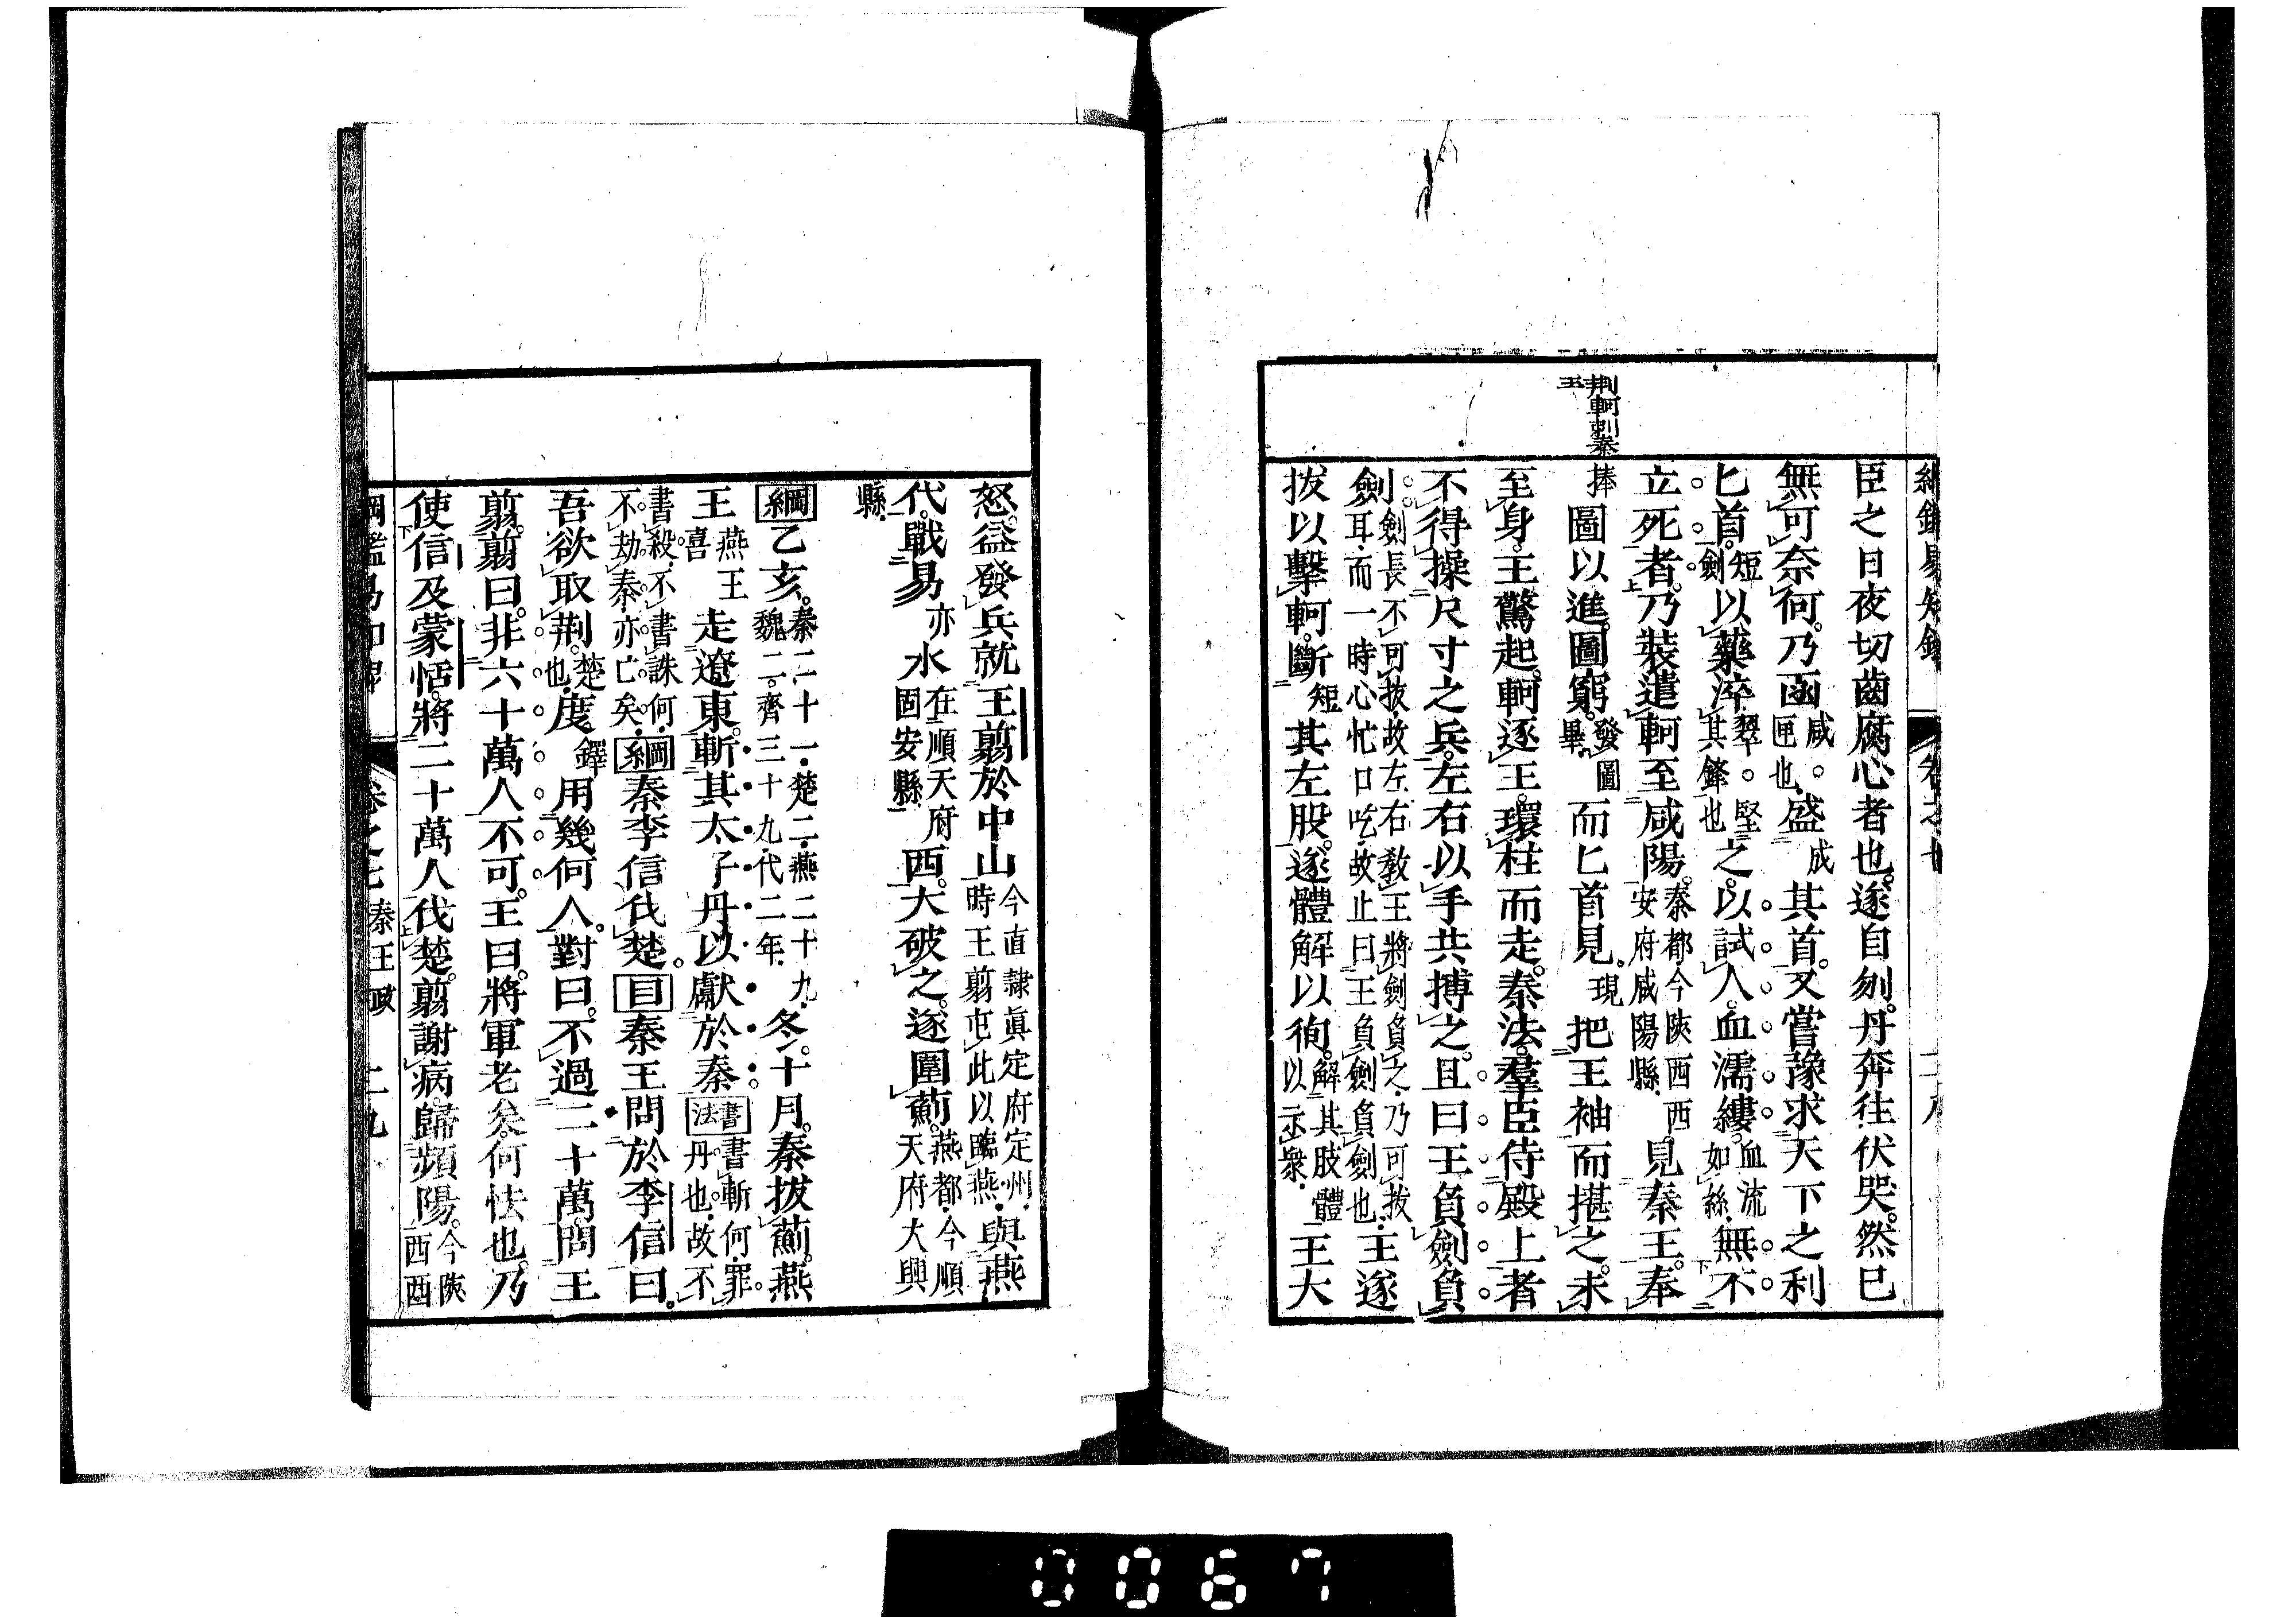 荊軻刺秦
王
臣之日夜切齒腐心者也。遂自刎。丹奔往伏哭。然已
無可奈何。乃函咸。匣也。盛成其首。又嘗豫求天下之利
匕首。短劍以藥淬翠。堅其鋒也之。以試人。血濡縷。血流如絲。無不
立死者。乃裝遣軻至咸陽。秦都今陝西西安府咸陽縣。見秦王。奉
捧圖以進。圖窮。發圖畢。而匕首見。現把王袖而揕之。未
至身。王驚起。軻逐王。環柱而走。秦法。羣臣侍殿上者
不得操尺寸之兵。左右以手共搏之。且曰王負劍負
劍。劍長不可拔。故左右敎王將劍負之。乃可拔耳。而一時心忙口吃。故止曰王負劍負劍也。王遂
拔以擊軻。斷短其左股。遂體解以徇。解其肢體以示衆。王大
怒。益發兵就王翦於中山今直隸眞定府定州。時王翦屯此以臨燕。與燕
代。戰易亦水在順天府固安縣西。大破之。遂圍薊。燕都。今順天府大興
縣。
綱乙亥。秦二十一。楚二。燕二十九。魏二。齊三十九。代二年。冬。十月。秦拔薊。燕
王燕王喜走遼東。斬其太子丹以獻於秦。書法書斬何。罪丹也。故不
書殺。不書誅何。不劫秦亦亡矣。綱秦李信伐楚。目秦王問於李信曰。
吾欲取荆。楚也。度鐸用幾何人。對曰。不過二十萬。問王
翦。翦曰。非六十萬人不可。王曰。將軍老矣。何怯也。乃
使信及蒙恬。將二十萬人伐楚。翦謝病。歸頻陽。今陝西西
卷之七 秦王政 二九